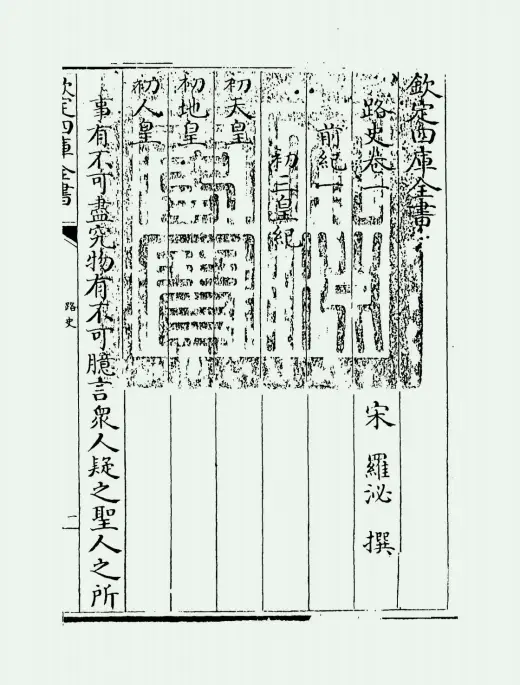 欽定四庫全書
路史卷一
宋 羅泌 撰
前紀一
初三皇紀
初天皇
初地皇
初人皇
事有不可盡究物有不可臆言衆人疑之聖人之所
欽定四庫全書
路史
一